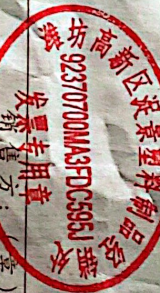 潍坊高新区沃景塑料制品经营部
92370700MA3FDC595J
发票专用章
销售方：（章）